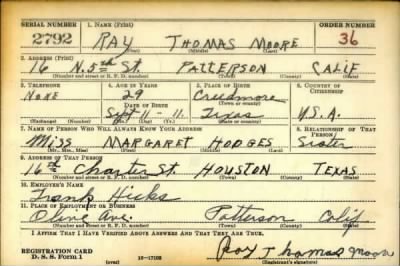 SERIAL NUMBER 1. NAME (Print) ORDER NUMBER
2792 RAY THOMAS MOORE 36
(First) (Middle) (Last)
2. ADDRESS (Print)
16 N. 5th St. PATTERSON CALIF
(Number and street or R. F. D. number) (Town) (County) (State)
3. TELEPHONE 4. AGE IN YEARS 5. PLACE OF BIRTH 6. COUNTRY OF CITIZENSHIP
NONE 29 Creedmore
DATE OF BIRTH (Town or county)
Sept 11 - 11. Texas U.S.A.
(Exchange) (Number) (Mo.) (Day) (Yr.) (State or country)
7. NAME OF PERSON WHO WILL ALWAYS KNOW YOUR ADDRESS 8. RELATIONSHIP OF THAT PERSON
Miss MARGARET HODGES Sister
(Mr., Mrs., Miss) (First) (Middle) (Last)
9. ADDRESS OF THAT PERSON
16th Charter St. HOUSTON TEXAS
(Number and street or R. F. D. number) (Town) (County) (State)
10. EMPLOYER'S NAME
Frank Hicks
11. PLACE OF EMPLOYMENT OR BUSINESS
Olive Ave. Patterson Calif
(Number and street or R. F. D. number) (Town) (County) (State)
I AFFIRM THAT I HAVE VERIFIED ABOVE ANSWERS AND THAT THEY ARE TRUE.
REGISTRATION CARD
D. S. S. FORM 1 (over) Ray Thomas Moore
(Registrant's signature)